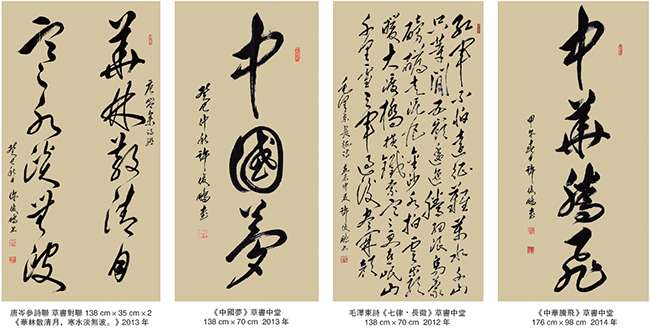 華林散清月
唐岑參詩聯
寒水淡無波
中國夢
紅軍不怕遠征難萬水千山
只等閒五嶺逶迤騰細浪烏蒙
磅礴走泥丸金沙水拍雲崖
暖大渡橋橫鐵索寒更喜岷山
千里雪三軍過後盡開顏
毛澤東長征詩
中華騰飛
唐岑參詩聯 草書對聯 138 cm×35 cm×2
《華林散清月，寒水淡無波。》2013 年
《中國夢》草書中堂
138 cm×70 cm 2013 年
毛澤東詩《七律·長徵》草書中堂
138 cm×70 cm 2012 年
《中華騰飛》草書中堂
176 cm×98 cm 2014 年